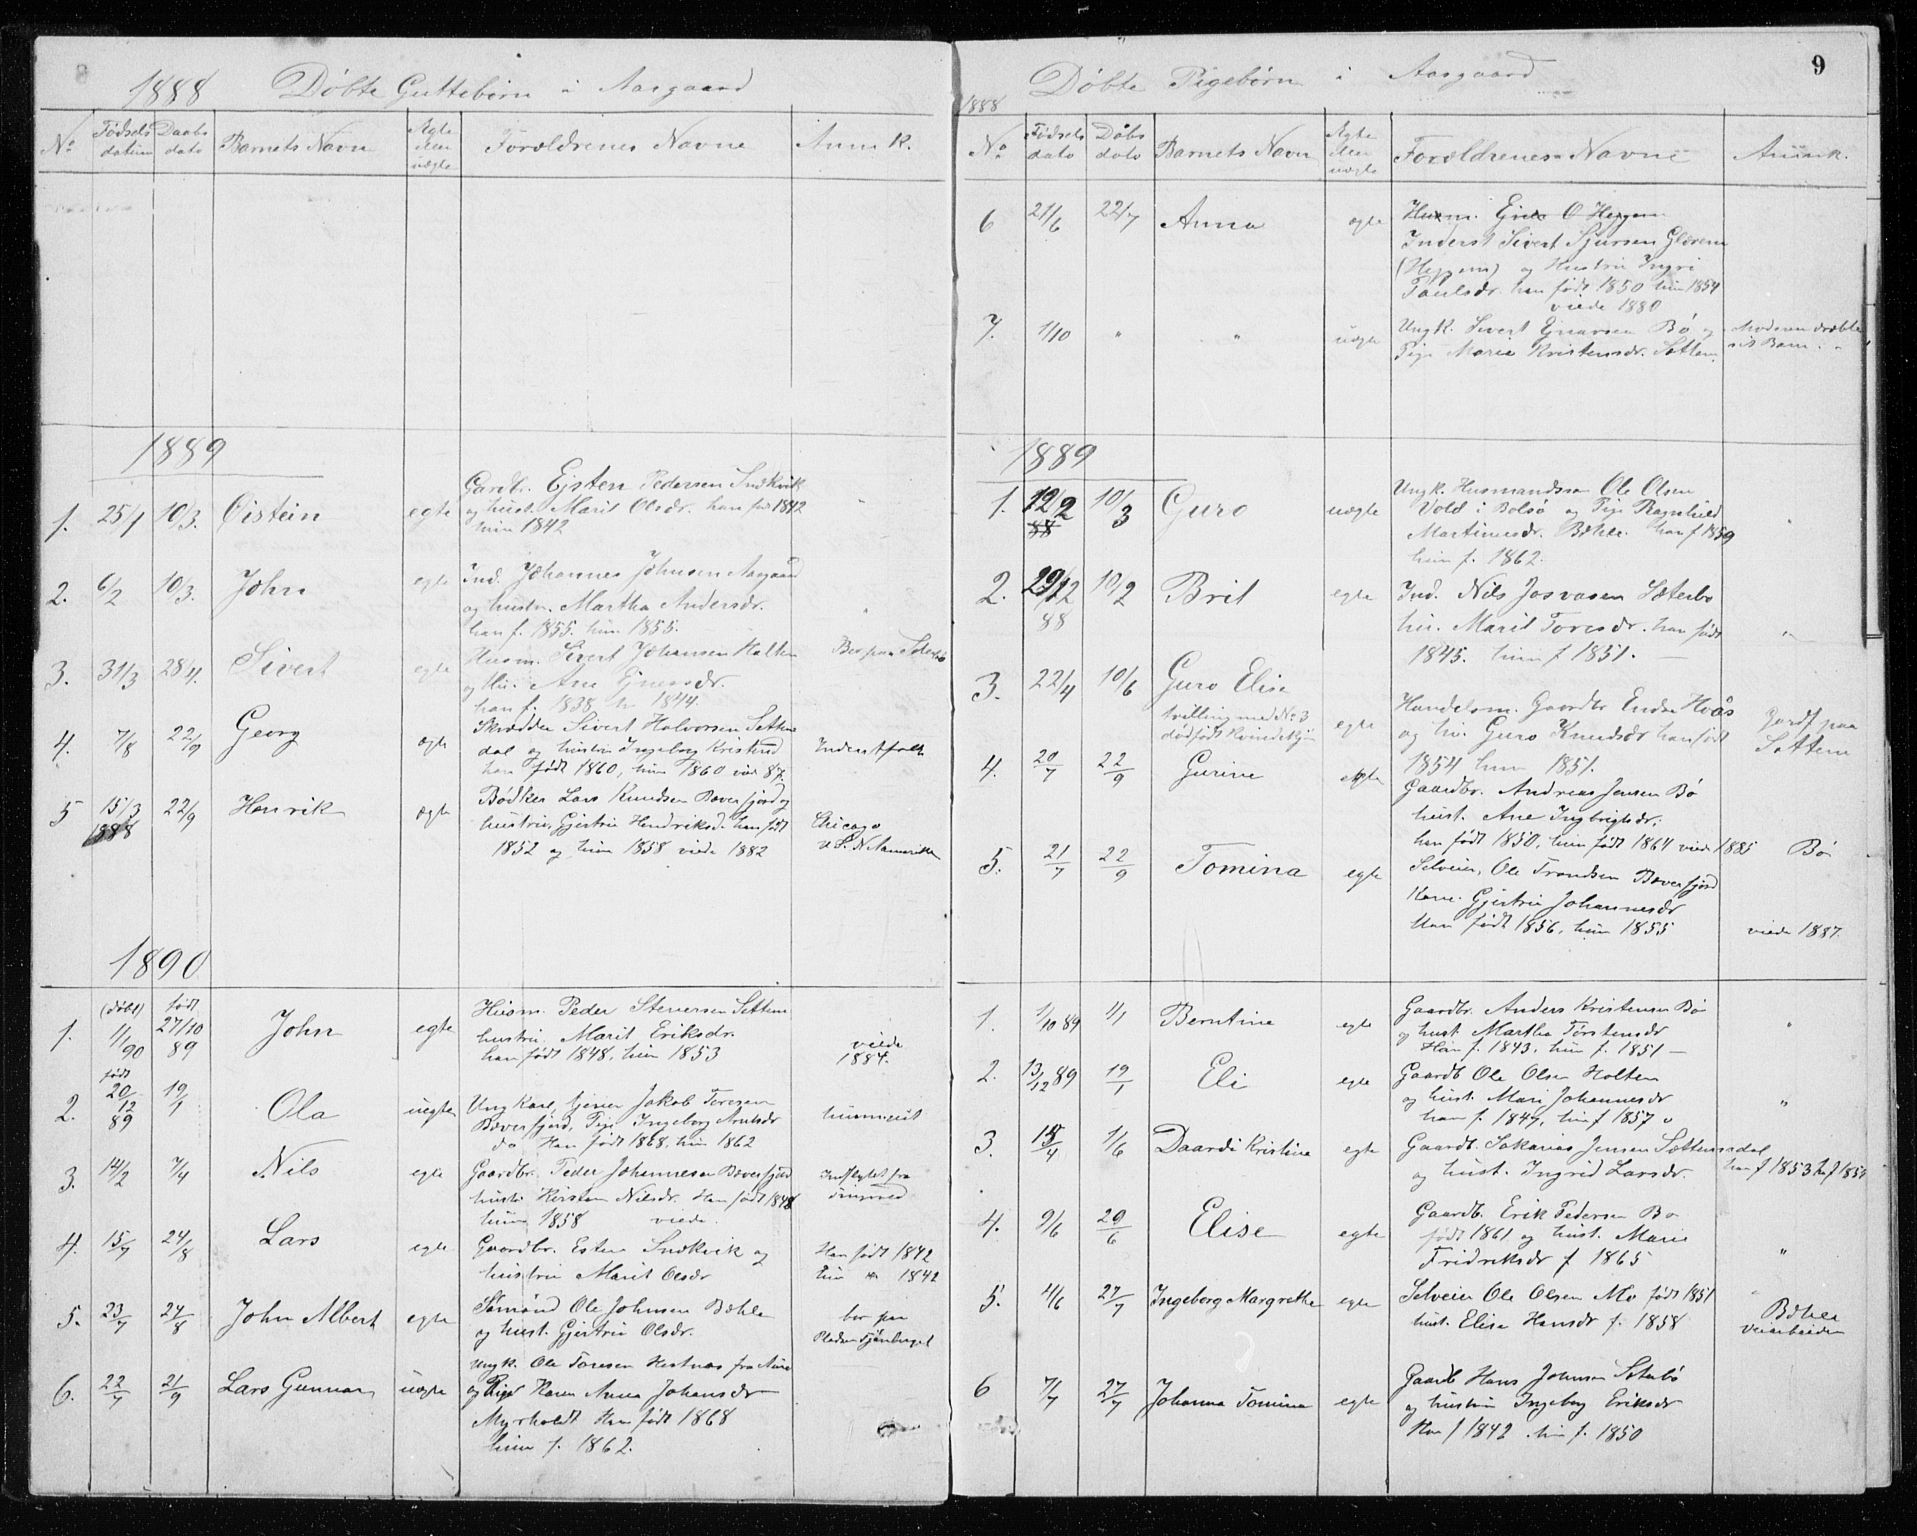 8
1888 Døbte Guttebørn i Aasgaard
No Fødsels datum Daabs dato Barnets Navn Ægte eller uægte Forældrenes Navne Anmk.
1889
1. 25/1 10/3. Øistein egte Gardbr. Ejsten Pedersen Snekvik
og hust. Marit Olsdr. han født 1842
hun 1842
2. 6/2 10/3. John egte Ind. Johannes Johnsen Aasgaard
og hustr. Martha Andersdr.
han f. 1855. hun 1855.
3. 31/3 28/4. Sivert egte Husm. Sivert Johansen Holten
og Hu. Ane
han f. 1838 h. 1844.
4. 7/8 22/9 Georg ægte Skrædder Sivert Halvorsen Settem
dal og hustru Ingeborg
han født 1860, hun 1860 vied 87.
5 15/3 1888 22/9 Henrik ægte Bødker Lars Knudsen Bæverfjord og
hustru Gjertru Henriksd. han født Chicago
1852 og hun 1858 viede 1882 N. Amerika
1890
1. (døbt) 1/1 90 født 27/10 89 John egte Husm. Peder Siversen Settem
hustru Marit Eriksdr. viede
han født 1848, hun 1853 1884.
2. født 20/12 89 19/1 Ola uegte Ungkarl, tjener Jakob Toresen
Bæverfjord, Pige Ingeborg Arntsdr
do Han født 1868, hun 1862
3. 14/2 7/4 Nils egte Gaardbr. Peder Johannesen Bæverfjord Indflyttet fra
hustr. Kirsten Nilsdr. Han født 1848
hun 1858 viede.
4. 15/7 24/8 Lars egte Gaardbr. Esten Snekvik og Han født 1842
hustru Marit Olsdr hun 1842
5. 23/7 24/8 John Albert egte Sømand Ole Johnsen Bæhle bor paa
og hust. Gjertru Olsdr. Pladsen
6. 22/7 21/9 Lars Gunnar uegte Ungk. Ole Toresen Hestnæs fra Aure
og Pige Karen Anna Johansdr
Myrholdt Han født 1868
hun f. 1862.
9
1888 Døbte Pigebørn i Aasgaard
No Fødsels dato Døbs dato Barnets Navn Ægte eller uægte Forældrenes Navne Anmk.
6 21/6 22/7 Anna egte Husm. O Heggem
Inderst Sivert Sjursen Glærem
(Heggem) og Hustru Ingri
Paulsdr. han født 1850 hun 1854
viede 1880
7. 1/10 " " uegte Ungk. Sivert Ejnarsen Bø og Moderen dræbte
Pige Marie Kristensdr. Settem. sit Barn.
1889
1. 12/2 88 10/3 Guro uegte Ungk. Husmandssøn Ole Olsen
Vold i Bolsø og Pige Ragnhild
Martinusdr. Bæhle. han f 1859
hun f. 1862.
2. 29/12 88 10/2 Brit egte Ind. Nils Josvasen Sæterbø
hu. Marit Toresdr. han født
1845. hun f 1851. —
3. 22/4 10/6 Guro Elise
tvilling med No 3 egte Handelsm. Gaardbr Endre Hvaas Gardf paa
dødfødt Kvindekjøn og hu. Guro Knudsdr han født Settem
1854 hun 1851.
4. 20/7 22/9 Gurine egte Gaardbr. Andreas Jensen Bø
hust. Ane Ingbrigtsdr.
han født 1850, hun født 1864 viede 1885 Bø
5. 21/7 22/9 Tomina egte Selveier, Ole Trondsen Bæverfjord
Kone Gjertru Johannesdr
Han født 1856, hun 1855 viede 1887.
1. 1/10 89 1/1 Berntine egte Gaardbr. Anders Kristensen Bø
og hust. Martha Torstensdr
Han f. 1843, hun f. 1851 —
2. 13/12 89 19/1 Eli egte Gaardb Ole Olsen Holten
og hust. Mari Johannesdr
han f. 1847, hun f 1857
3. 15/4 1/6 Daardi Kristine egte Gaardb. Sakarias Jensen Settemsdal
og hust. Ingrid Larsdr. han f 1853 h. f 1854
4. 9/6 29/6 Elise egte Gaardb. Erik Pedersen Bø
født 1861 og hust. Marie
Fridriksdr f 1865
5. 4/6 27/7 Ingeborg Margrethe egte Selveier Ole Olsen Mo født 1851 Bæhle
hust. Elise Hansdr f. 1858 Veiarbeider
6 7/7 27/7 Johanna Tomina egte Gaardb Hans Johnsen Sæterbø
og hustru Ingeborg Eriksdr
Han f 1842 . hun f. 1850